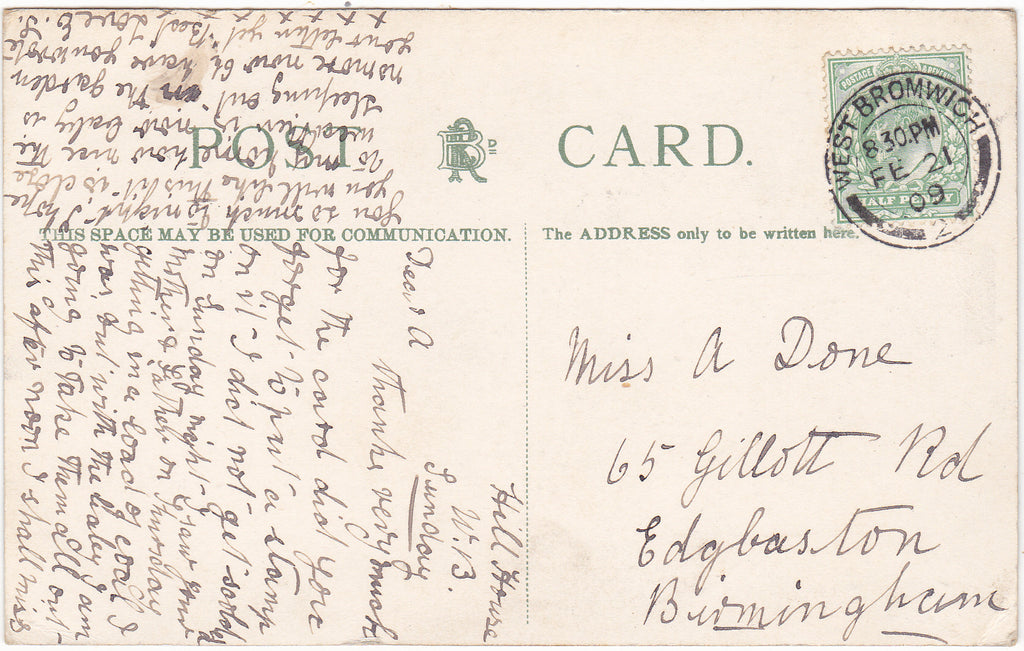 POST CARD.
THIS SPACE MAY BE USED FOR COMMUNICATION.
The ADDRESS only to be written here.
POSTAGE & REVENUE
HALF PENNY
WEST BROMWICH
8.30 PM
FE 21
09
2
Miss A Done
65 Gillott Rd
Edgbaston
Birmingham
Hill House
W.B.
Sunday
Dear A
thanks very much
for the card did you
forget to put a stamp
on it I did not get
on Sunday night I saw your
mother & father on Thursday
getting in a load of coal I
was out with the baby I am
going to take them all out
this afternoon I shall miss
you so much to night I hope
you will like this it is close
to my home how nice the
weather is now baby is
sleeping out in the garden
no more now have you wrote
your letter yet Best Love E. S.
x x x x x